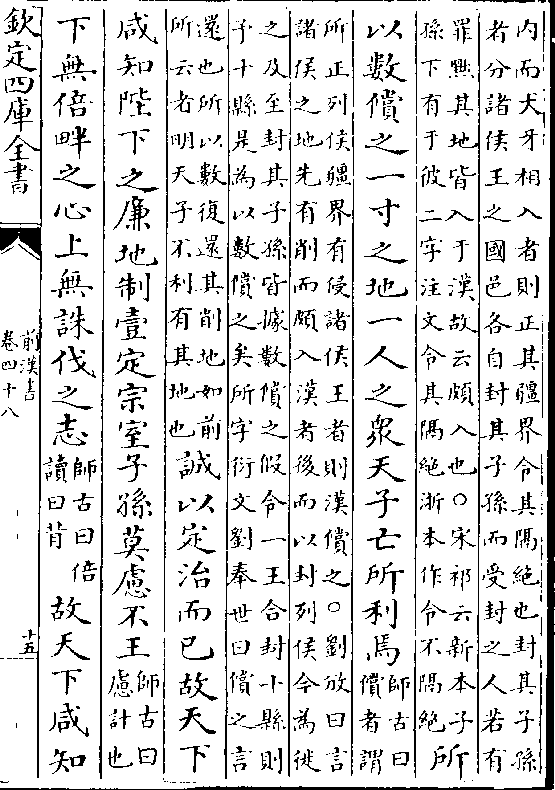 内而犬牙相入者則正其疆界令其隔絶也封其子孫
者分諸侯王之國邑各自封其子孫而受封之人若有
罪黜其地皆入于漢故云頗入也○宋祁云新本子
孫下有于彼二字注文令其隔絶浙本作令不隔絶
所
以數償之一寸之地一人之衆天子亡所利焉
師古曰
償者謂
所正列侯疆界有侵諸侯王者則漢償之○劉攽曰言
諸侯之地先有削而頗入漢者後而以封列侯今為徙
之及至封其子孫皆據數償之假令一王合封十縣則
予十縣是為以數償之矣所字衍文劉奉世曰償之言
還也所以數復還其削地如前
所云者明天子不利有其地也
誠以定治而已故天下
咸知陛下之廉地制壹定宗室子孫莫慮不王
師古曰
慮計也
下無倍畔之心上無誅伐之志
師古曰倍
讀曰背
故天下咸知
欽定四庫全書
前漢書
卷四十八
十五